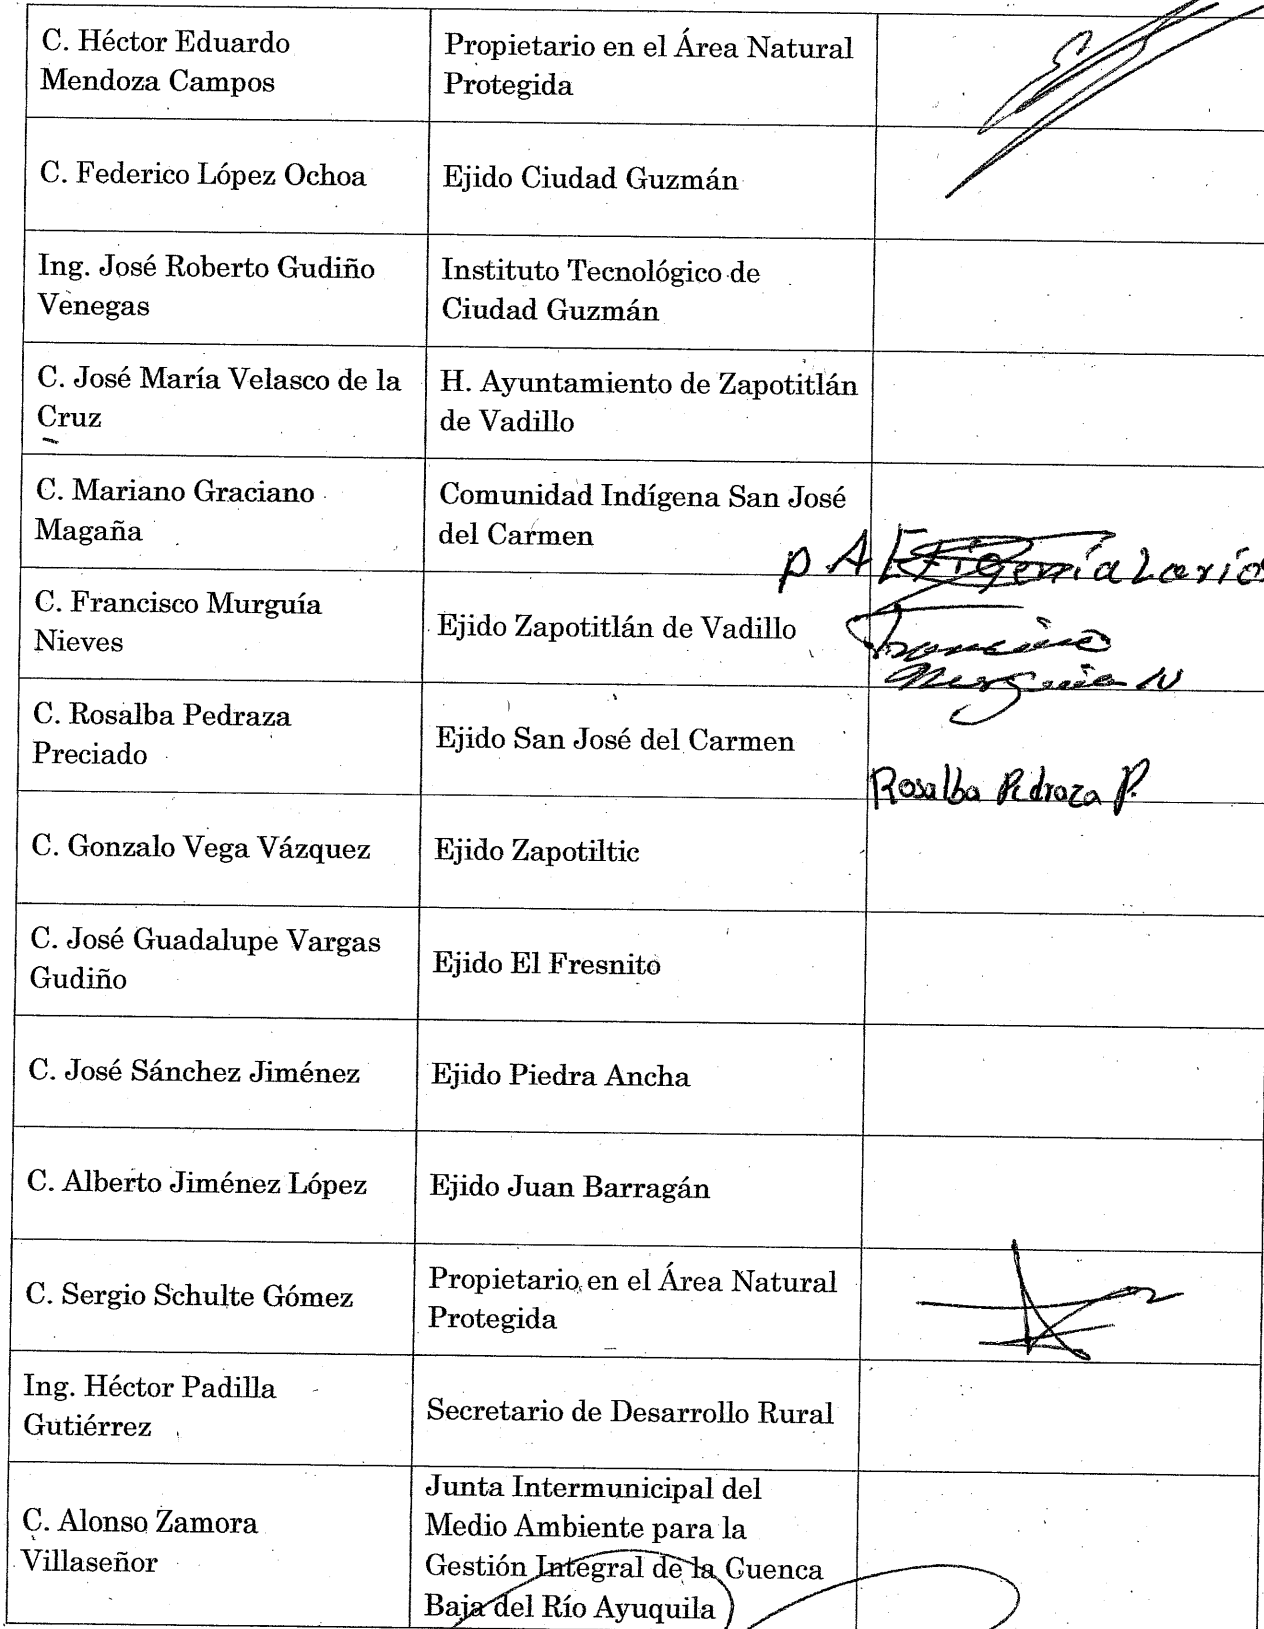 C. Héctor Eduardo
Mendoza Campos
Propietario en el Área Natural
Protegida
C. Federico López Ochoa
Ejido Ciudad Guzmán
Ing. José Roberto Gudiño
Venegas
Instituto Tecnológico de
Ciudad Guzmán
C. José María Velasco de la
Cruz
H. Ayuntamiento de Zapotitlán
de Vadillo
C. Mariano Graciano
Magaña
Comunidad Indígena San José
del Carmen
p A
C. Francisco Murguía
Nieves
Ejido Zapotitlán de Vadillo
Francisco
Murguia N
C. Rosalba Pedraza
Preciado
Ejido San José del Carmen
Rosalba Pedraza P.
C. Gonzalo Vega Vázquez
Ejido Zapotiltic
C. José Guadalupe Vargas
Gudiño
Ejido El Fresnito
C. José Sánchez Jiménez
Ejido Piedra Ancha
C. Alberto Jiménez López
Ejido Juan Barragán
C. Sergio Schulte Gómez
Propietario en el Área Natural
Protegida
Ing. Héctor Padilla
Gutiérrez
Secretario de Desarrollo Rural
C. Alonso Zamora
Villaseñor
Junta Intermunicipal del
Medio Ambiente para la
Gestión Integral de la Cuenca
Baja del Río Ayuquila